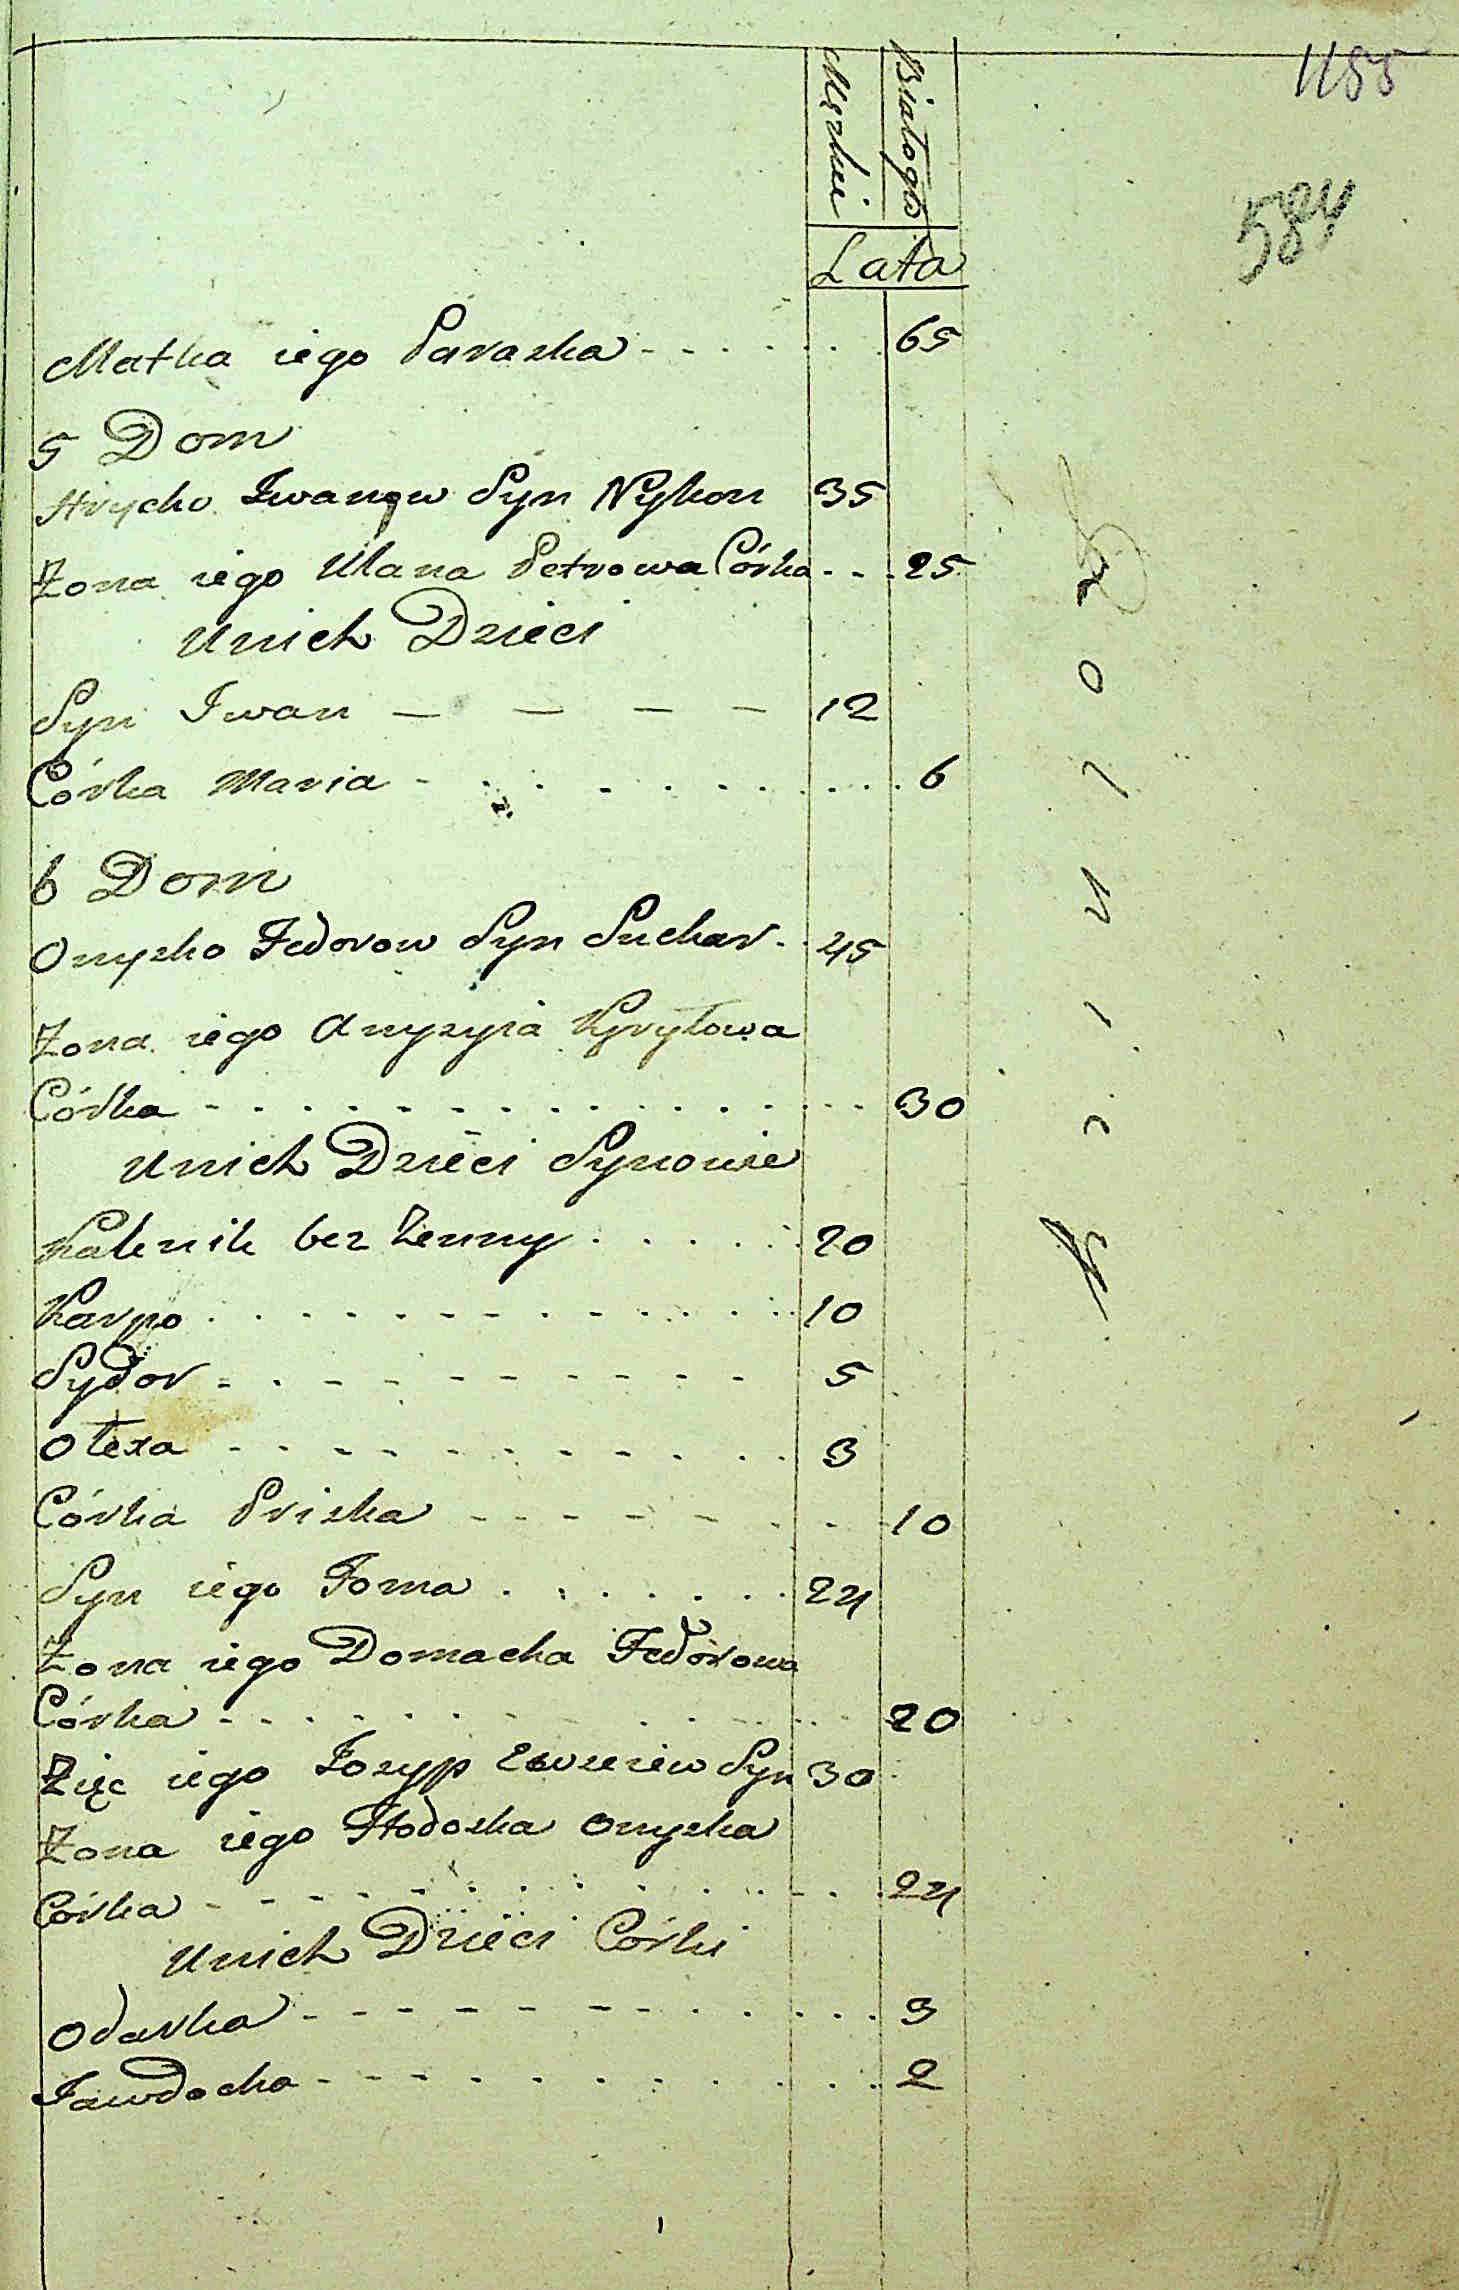 1155
584
Męzkiei Białogło
Lata
Matka iego Paraska - - - - - - - 65
5 Dom
Hrycko Iwanow Syn Nykon 35
Żona iego Ulana Petrowa Córka - - - 25
Unich Dzieci
Syn Iwan — — — — 12
Córka Maria - - - - - - - - - 6
6 Dom
Onyzko Fedorow Syn Suchar - 45
Żona iego Anyzyia Kyryłowa
Córka - - - - - - - - - - - - 30
Unich Dzieci Synowie
Kalenik bez Żenny - - - - - 20
Karpo - - - - - - - - - - 10
Sydor - - - - - - - - - - 5
Ołexa - - - - - - - - - - 3
Córka Priska - - - - - - - - 10
Syn iego Foma - - - - - - 24
Żona iego Domacha Fedorowa
Córka - - - - - - - - - - - 20
Zięc iego Iozyp Syn 30
Żona iego Hodoska Onyzka
Córka - - - - - - - - - - - 24
Unich Dzieci Córki
Odarka - - - - - - - - - - 3
Jawdocha - - - - - - - - - - 2